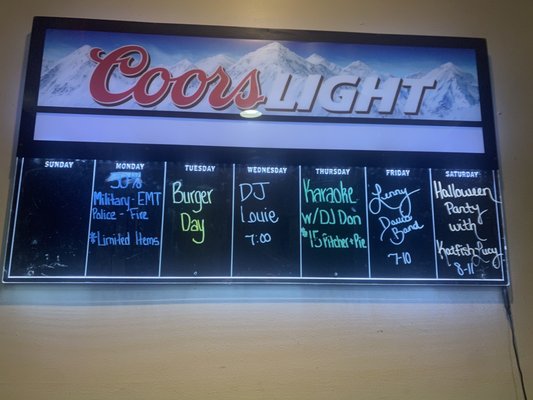 Coors LIGHT
SUNDAY
MONDAY
50%
Military-EMT
Police - Fire
*Limited Items
TUESDAY
Burger
Day
WEDNESDAY
DJ
Louie
7:00
THURSDAY
Karaoke
w/DJ Don
$15 Pitcher + Pie
FRIDAY
Lenny
Davis
Band
7-10
SATURDAY
Halloween
Party
with
Katfish Lucy
8-11